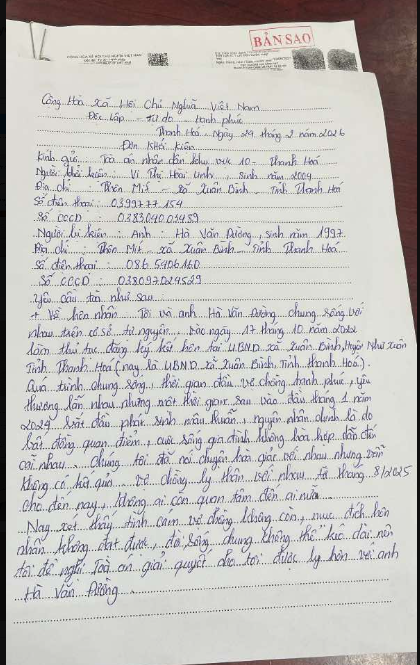 BẢN SAO
Cộng Hòa Xã Hội Chủ Nghĩa Việt Nam
Độc Lập - Tự do - Hạnh phúc
Thanh Hoá, Ngày 24 tháng 2 năm 2026
Đơn Khởi Kiện
Kính gửi: Toà án nhân dân khu vực 10 - Thanh Hoá
Người khởi kiện: Vi Thị Hoài Linh, sinh năm 2004
Địa chỉ: Thôn Mít - xã Xuân Bình - Tỉnh Thanh Hoá
Số điện thoại: 0399777154
Số CCCD: 038304003489
Người bị kiện: Anh: Hà Văn Đường, sinh năm 1997
Địa chỉ: Thôn Mít xã Xuân Bình - Tỉnh Thanh Hoá
Số điện thoại: 086 5406160
Số CCCD: 038097024529
Yêu cầu tòa như sau
+ Về hôn nhân Tôi và anh Hà Văn Đường chung sống với
nhau trên cơ sở tự nguyện, vào ngày 17 tháng 10 năm 2022
làm thủ tục đăng ký kết hôn tại UBND xã Xuân Bình, Huyện Như Xuân
Tỉnh Thanh Hoá (nay là UBND xã Xuân Bình, Tỉnh Thanh hoá).
Quá trình chung sống, thời gian đầu vợ chồng hạnh phúc, yêu
thương lẫn nhau nhưng một thời gian sau vào đầu tháng 1 năm
2024 bắt đầu phát sinh mâu thuẫn, nguyên nhân chính là do
bất đồng quan điểm, cuộc sống gia đình không hòa hợp dẫn đến
cãi nhau. Chúng tôi đã nói chuyện hòa giải với nhau nhưng vẫn
không có kết quả. vợ chồng ly thân với nhau từ tháng 8/2025
cho đến nay, không ai còn quan tâm đến ai nữa.
Nay xét thấy tình cảm vợ chồng không còn, mục đích hôn
nhân không đạt được, đời sống chung không thể kéo dài nên
tôi đề nghị Toà án giải quyết cho tôi được ly hôn với anh
Hà Văn Đường